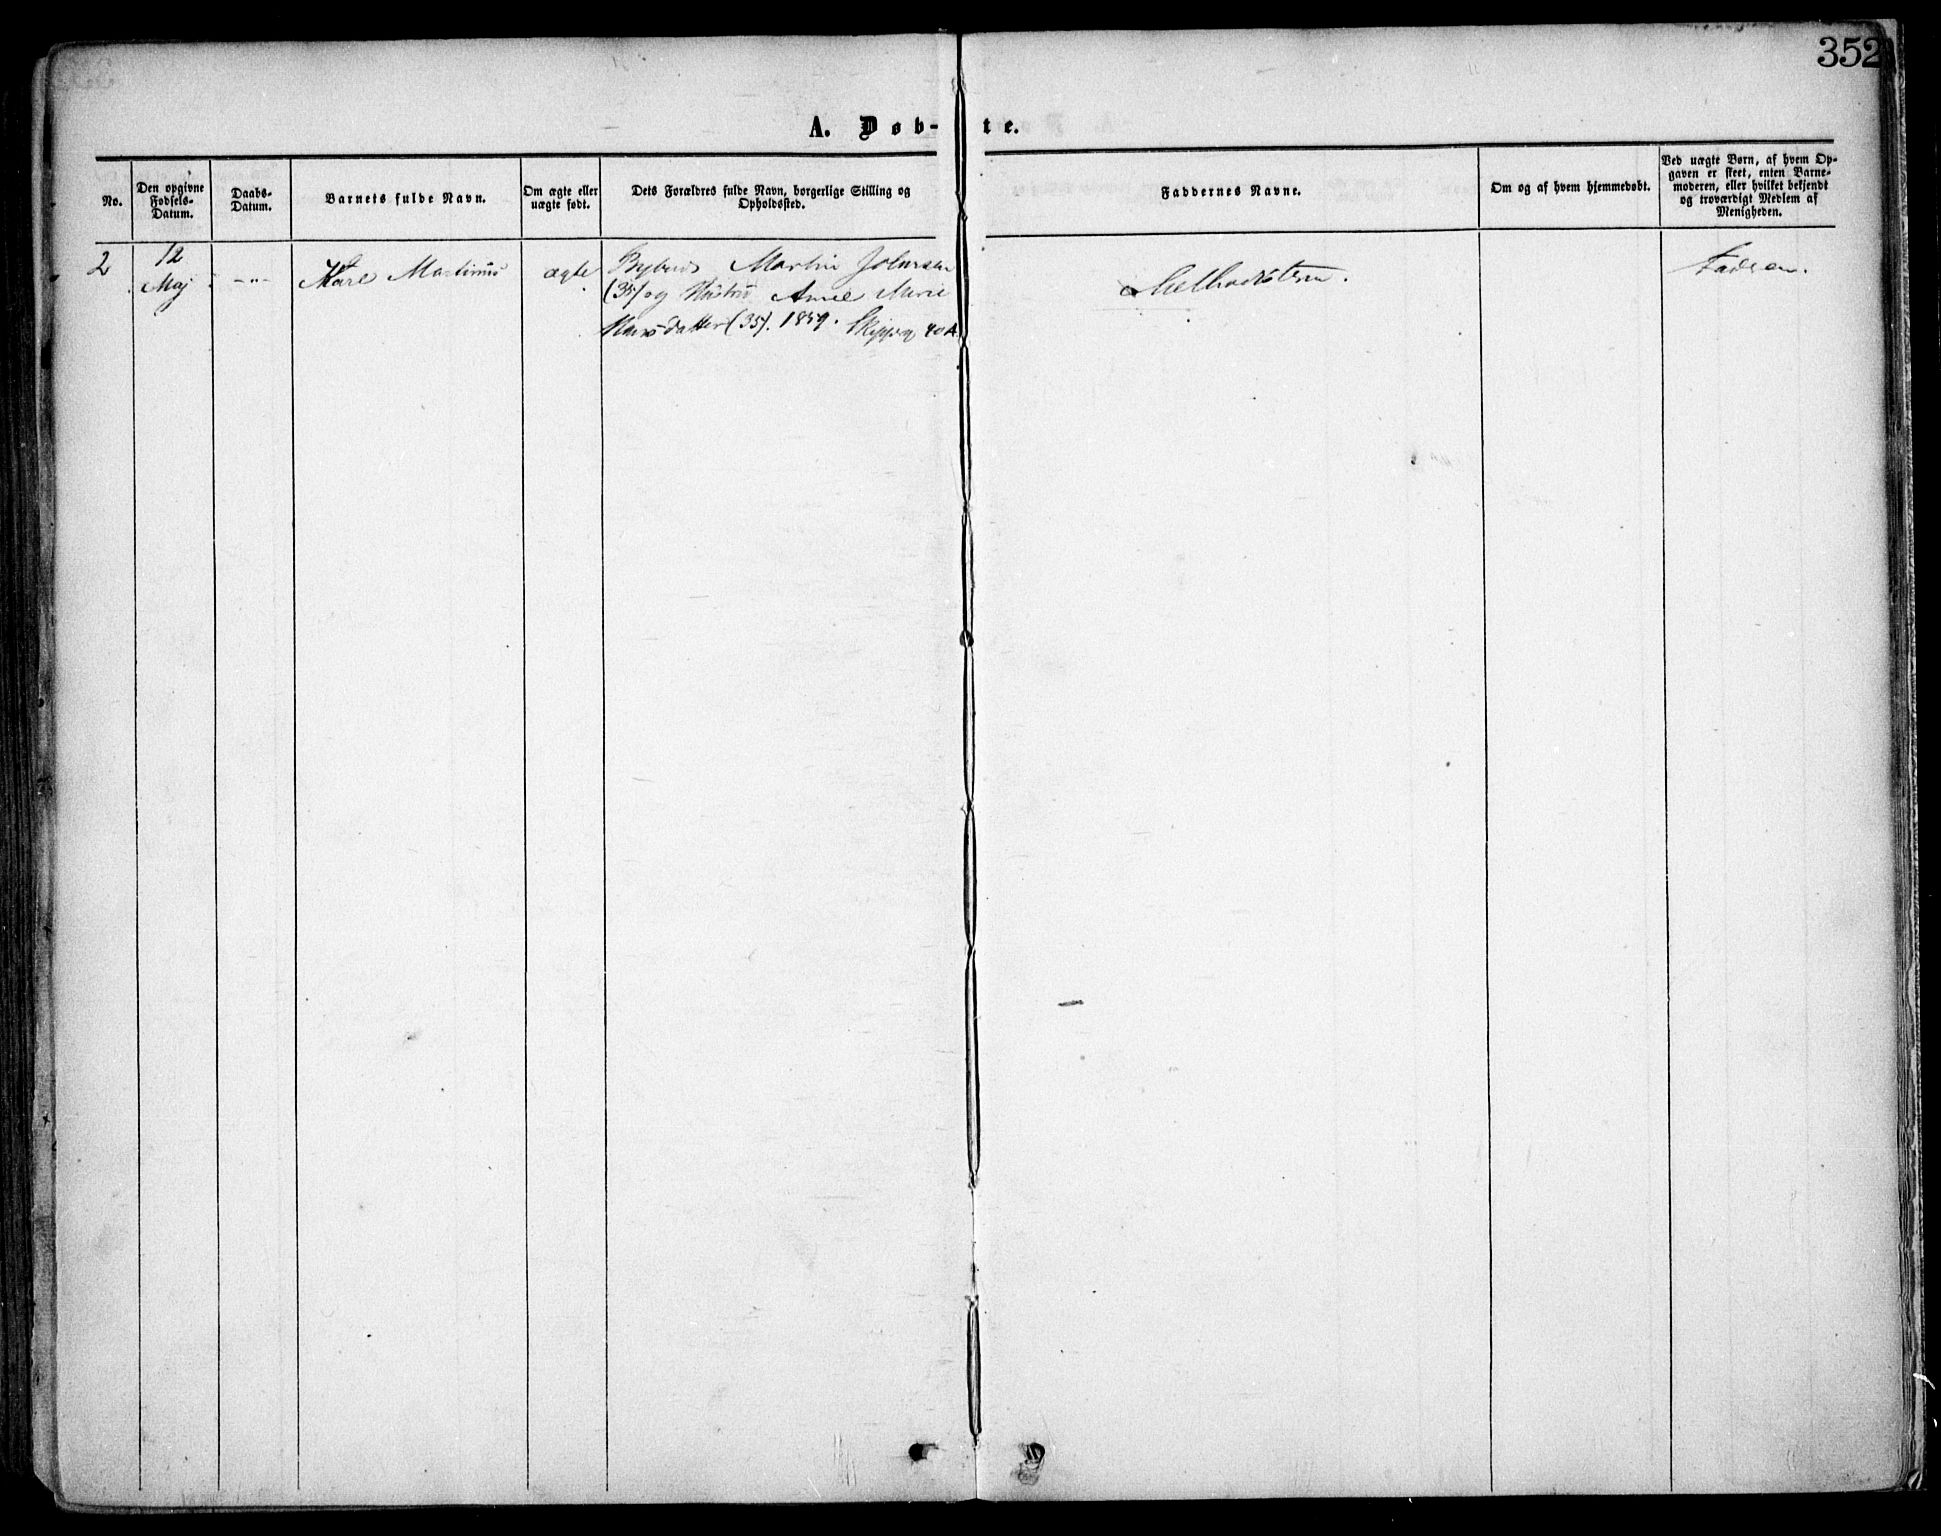 352
A. Døb-te.
No.
Den opgivne Fødsels-Datum.
Daabs-Datum.
Barnets fulde Navn.
Om ægte eller uægte født.
Dets Forældres fulde Navn, borgerlige Stilling og Opholdssted.
Faddernes Navne.
Om og af hvem hjemmedøbt.
Ved uægte Børn, af hvem Op-
gaven er skeet, enten Barne-
moderen, eller hvilket bekjendt
og troværdigt Medlem af
Menigheden.
2
12
Maj
-"-
Karl Martinus
ægte
Bybud Martin Johnsen
(35) og Hustru Anne Marie
Hansdatter (35). 1859. 40 A.
Faderen.